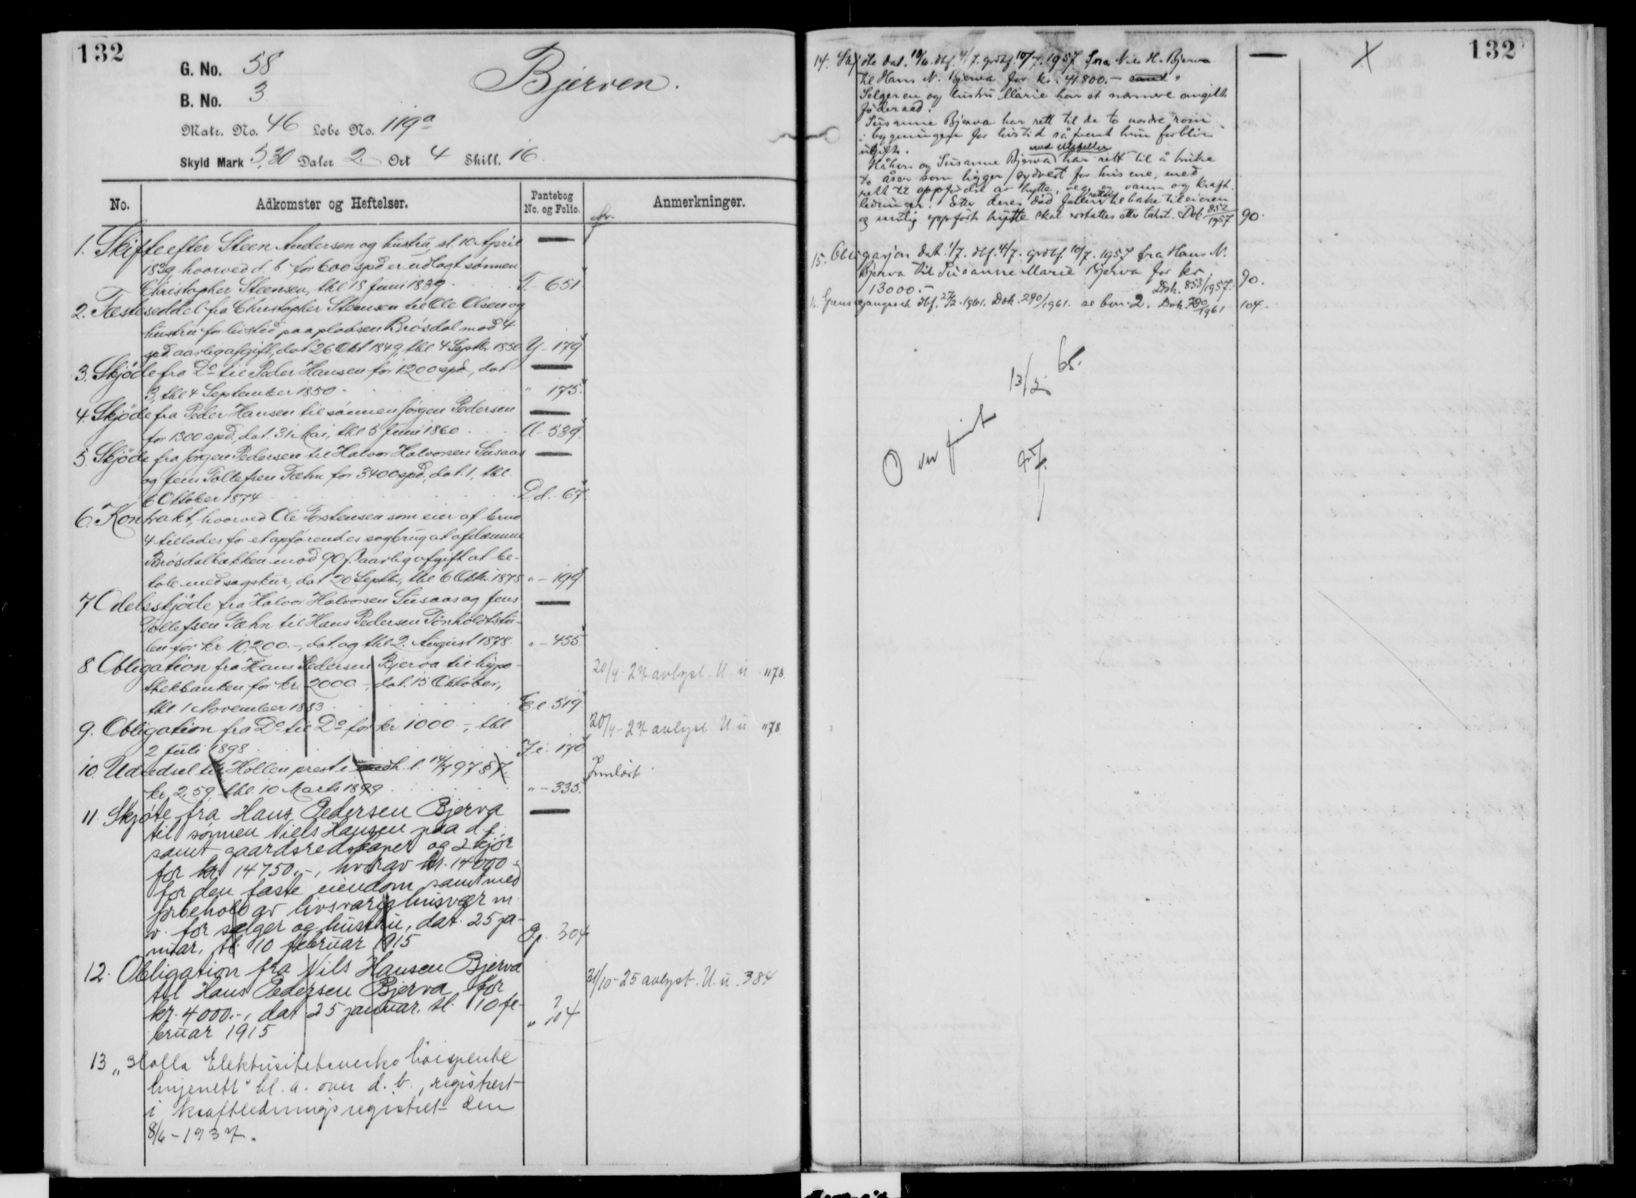 132
G. No. 58
Bjerven.
B. No. 3
Matr. No. 46 Løbe No. 119a
Skyld Mark 5,30 Daler 2 Ort 4 Skill. 16.
No.
Adkomster og Heftelser.
Pantebog
No. og Folio.
Anmerkninger.
1. Skifte efter Steen Andersen og hustru, sl. 10 April
1839, hvorved d. b. for 600 spd er udlagt sønnen
Christopher Steensen, thl 18 Juni 1839. T - 651
2. Fæsteseddel fra Christopher Steensen til Ole Olsen og
hustru for livstid paa pladsen Brøsdal mod 4
spd. aarlig afgift, dat 26 Okt 1849, thl 4 Septbr 1850 Y - 179
3. Skjøde fra Do til Peder Hansen for 1200 spd, dat
3, thl 4 September 1850. " 175.
4. Skjøde fra Peder Hansen til sønnen Jørgen Pedersen
for 1300 spd, dat. 31 Mai, thl 5 Juni 1860 A - 539.
5. Skjøde fra Jørgen Pedersen til Halvor Halvorsen Susaas
og Jens Tollefsen Fæhn for 3400 spd, dat. 1, thl
6 Oktober 1874 D.d. 67
6. Kontrakt, hvorved Ole Torstensen som eier af brno
4 tillades for et opførendes sagbrug at opdæmme
Brøsdalbækken mod 90 β aarlig afgift at be-
tale med sagskur, dat 20 Septbr, thl 6 Oktbr 1875 " - 199
7. Odelsskjøde fra Halvor Halvorsen Susaas og Jens
Tollefsen Fæhn til Hans Pedersen Tønholtstu-
len for kr 10,200.-, dat. og thl 2. August 1878 " - 455
8. Obligation fra Hans Pedersen Bjerva til hypo-
thekbanken for kr. 2000 -, dat. 15 Oktober,
thl 1 November 1883 E.e. 519
20/4 - 27 avlyst. U u 178.
9. Obligation fra Do til Do for kr 1000 -, thl
2 Juli 1898. J.i. 170
20/4 - 27 avlyst U u 178
10. Udsedsel til Hollen prest i
kr. 2,59, thl 10 Marts 1899 " - 335.
Innløst.
11. Skjøte fra Hans Pedersen Bjerva
til sønnen Niels Hansen paa d. b.
samt gaardsredskaper og 2 kjør
for kr. 14750.-, hvorav kr. 14000.-
for den faste eiendom samt med
forbehold av livsvarig husvær m.
v. for sælger og hustru, dat. 25 ja-
nuar, tl. 10 februar 1915 304
12. Obligation fra Nils Hansen Bjerva
til Hans Pedersen Bjerva for
kr. 4000.-, dat 25 januar, tl. 10 fe-
bruar 1915
31/10 - 25 avlyst. U. u. 384
13. "Holla Elektrisitetsverks høispente
linjenett" bl. a. over d. b., registrert
i kraftledningsregistret den
8/6 - 1937.
132
14. Skjøte dat. 14/6. dbf. 4/7. grdbf. 10/7. 1957 fra Nils H. Bjerva
til Hans N. Bjerva for kr. 41800.-
Selgeren og hustru Marie har et nærmere angitt
føderaad.
Susanne Bjerva har rett til de to nordre rom
i bygningen for livstid så fremt hun forblir
ugift.
Håkon og Susanne Bjerva har rett til å bruke
to åser som ligger sydvest for husene, med
rett til oppførdsel av hytte, veg og vann og kraft-
ledninger. Etter deres død faller retten tilbake til eieren
og mulig oppført hytte skal erstattes etter takst. Dok. 852/1957 90.
15. Obligasjon dat. 1/7. dbf. 4/7. grdbf. 10/7. 1957 fra Hans N.
Bjerva til Susanne Marie Bjerva for kr.
13000.- Dok. 853/1957. 90.
dbf. 27/2. 1961. Dok. 290/1961. se bnr. 2. Dok. 1961 104.
13/5. 65.
X